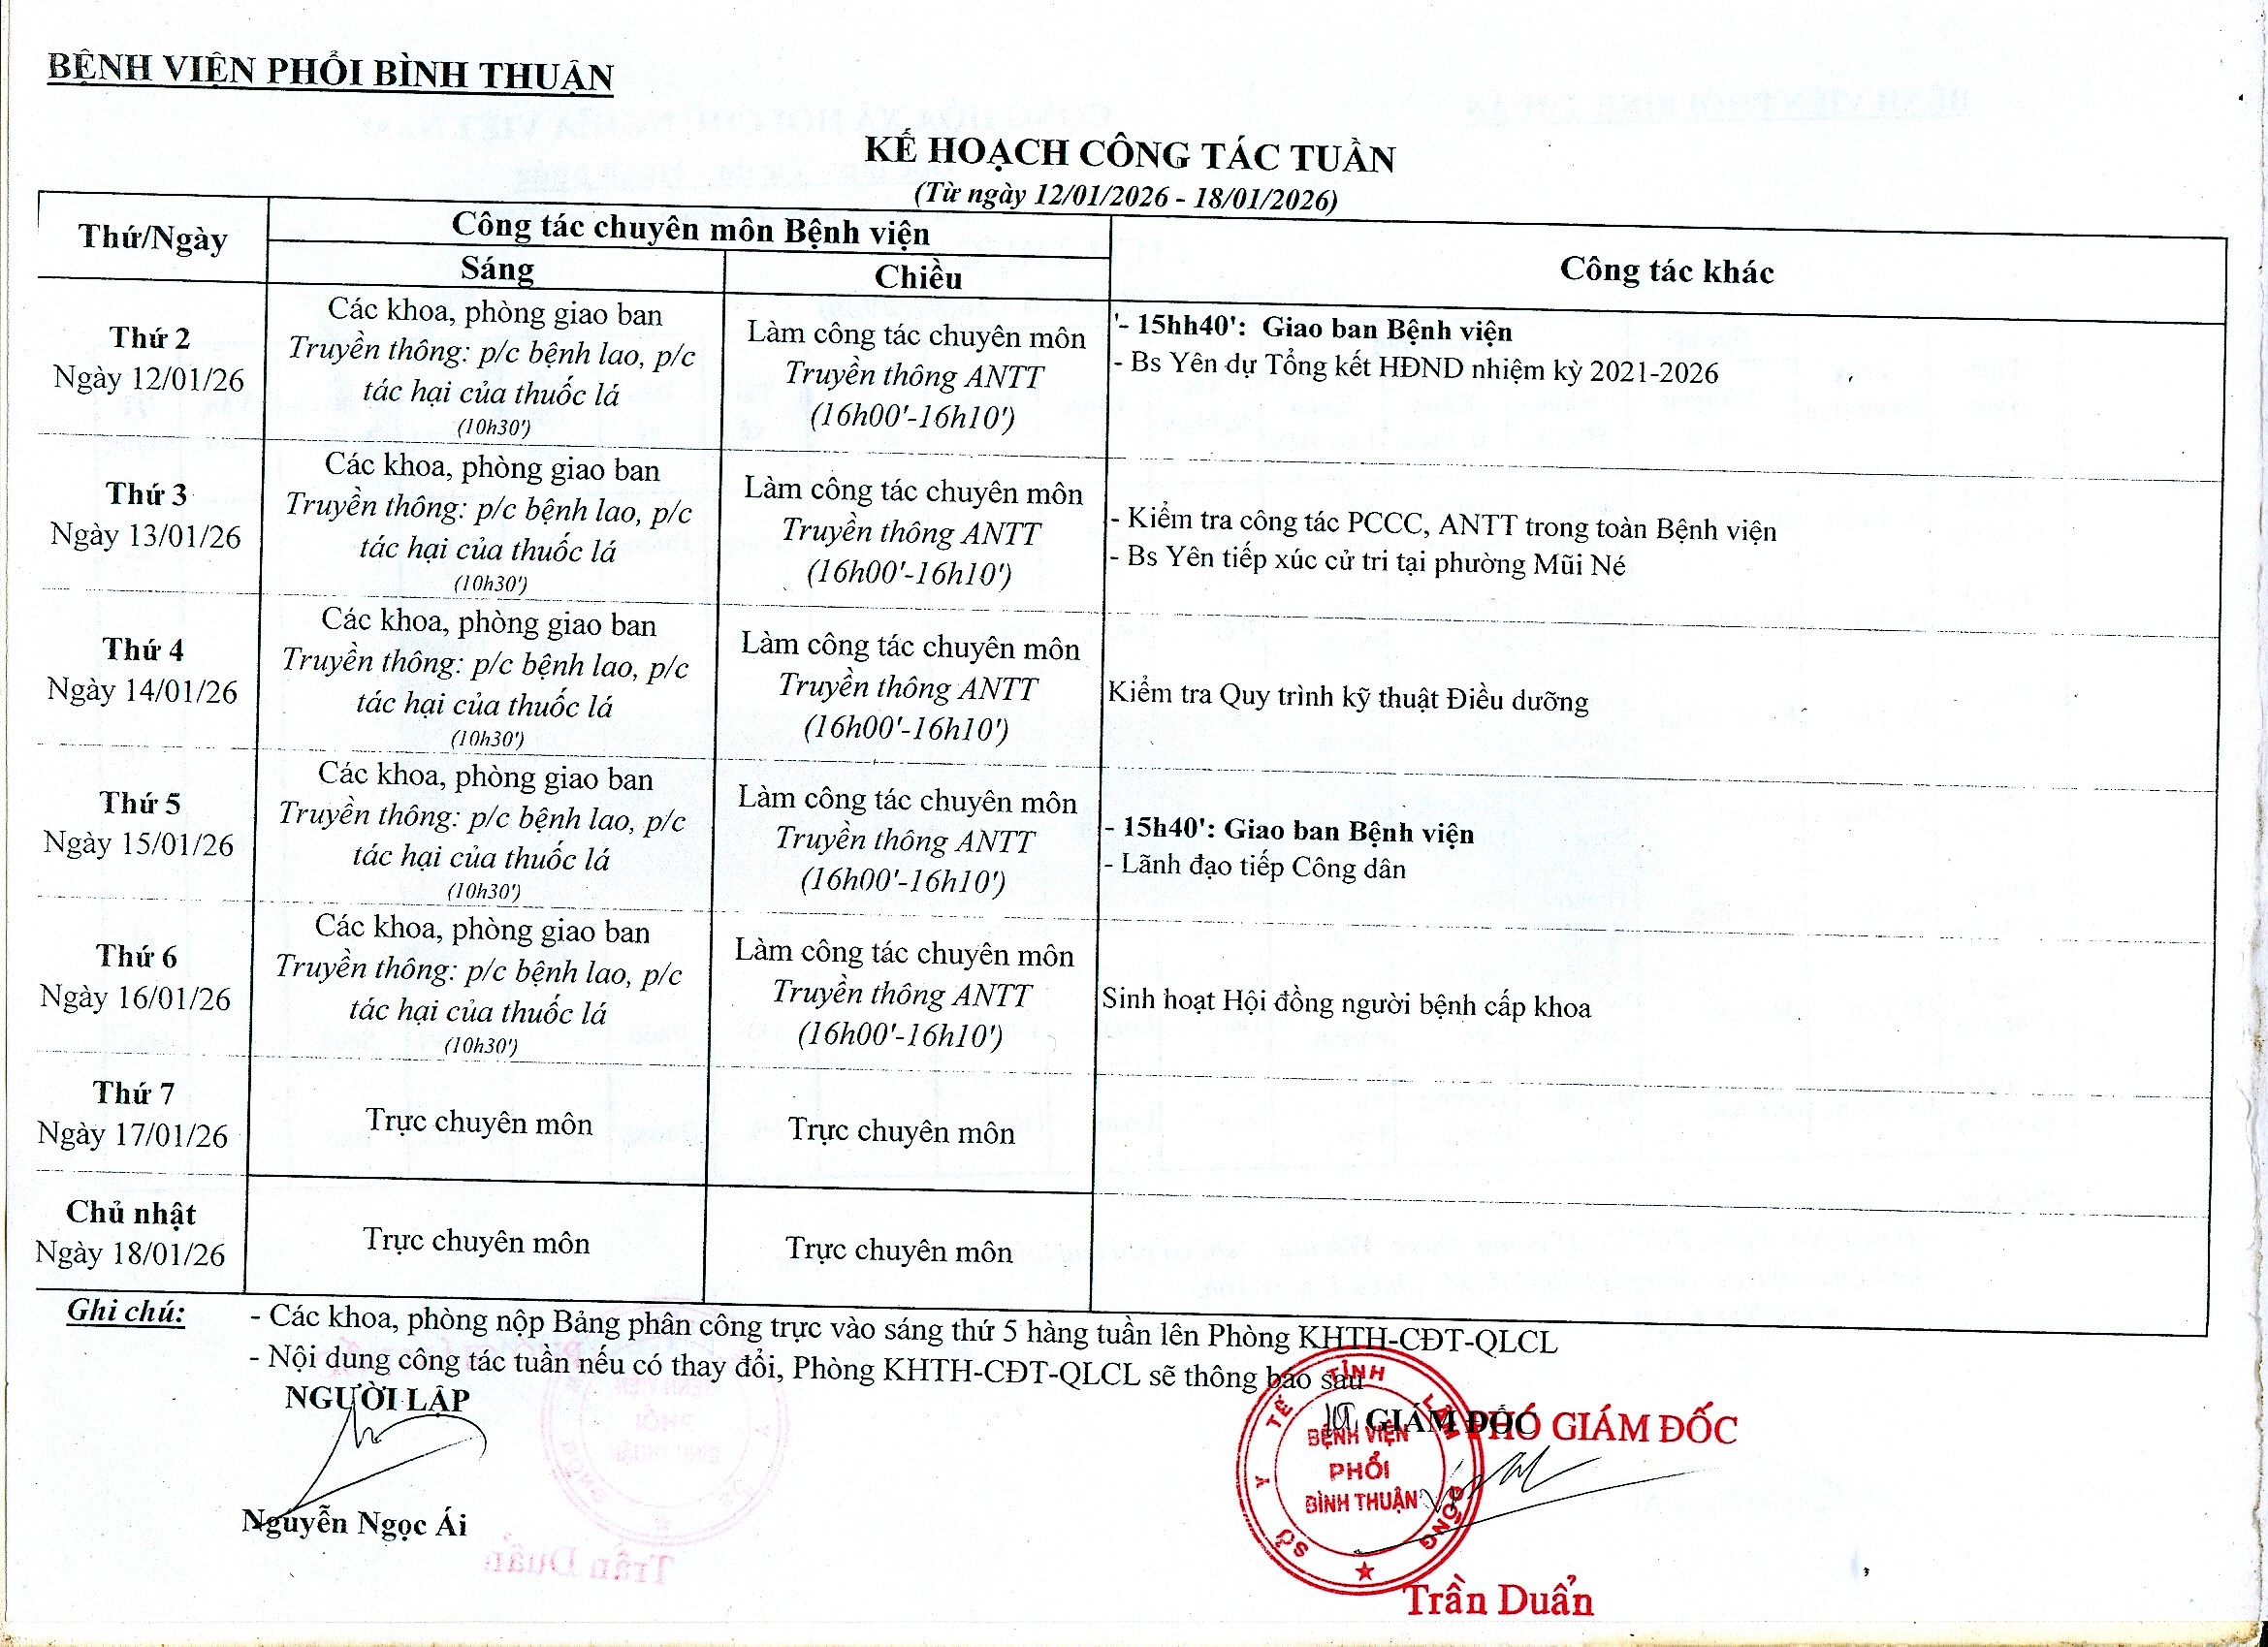 BỆNH VIỆN PHỔI BÌNH THUẬN
KẾ HOẠCH CÔNG TÁC TUẦN
(Từ ngày 12/01/2026 - 18/01/2026)
Thứ/Ngày
Công tác chuyên môn Bệnh viện
Công tác khác
Sáng
Chiều
Thứ 2
Ngày 12/01/26
Các khoa, phòng giao ban
Truyền thông: p/c bệnh lao, p/c
tác hại của thuốc lá
(10h30')
Làm công tác chuyên môn
Truyền thông ANTT
(16h00'-16h10')
'- 15hh40':  Giao ban Bệnh viện
- Bs Yên dự Tổng kết HĐND nhiệm kỳ 2021-2026
Thứ 3
Ngày 13/01/26
Các khoa, phòng giao ban
Truyền thông: p/c bệnh lao, p/c
tác hại của thuốc lá
(10h30')
Làm công tác chuyên môn
Truyền thông ANTT
(16h00'-16h10')
- Kiểm tra công tác PCCC, ANTT trong toàn Bệnh viện
- Bs Yên tiếp xúc cử tri tại phường Mũi Né
Thứ 4
Ngày 14/01/26
Các khoa, phòng giao ban
Truyền thông: p/c bệnh lao, p/c
tác hại của thuốc lá
(10h30')
Làm công tác chuyên môn
Truyền thông ANTT
(16h00'-16h10')
Kiểm tra Quy trình kỹ thuật Điều dưỡng
Thứ 5
Ngày 15/01/26
Các khoa, phòng giao ban
Truyền thông: p/c bệnh lao, p/c
tác hại của thuốc lá
(10h30')
Làm công tác chuyên môn
Truyền thông ANTT
(16h00'-16h10')
- 15h40': Giao ban Bệnh viện
- Lãnh đạo tiếp Công dân
Thứ 6
Ngày 16/01/26
Các khoa, phòng giao ban
Truyền thông: p/c bệnh lao, p/c
tác hại của thuốc lá
(10h30')
Làm công tác chuyên môn
Truyền thông ANTT
(16h00'-16h10')
Sinh hoạt Hội đồng người bệnh cấp khoa
Thứ 7
Ngày 17/01/26
Trực chuyên môn
Trực chuyên môn
Chủ nhật
Ngày 18/01/26
Trực chuyên môn
Trực chuyên môn
Ghi chú:
- Các khoa, phòng nộp Bảng phân công trực vào sáng thứ 5 hàng tuần lên Phòng KHTH-CĐT-QLCL
- Nội dung công tác tuần nếu có thay đổi, Phòng KHTH-CĐT-QLCL sẽ thông báo sau
NGƯỜI LẬP
GIÁM ĐỐC
PHÓ GIÁM ĐỐC
SỞ Y TẾ TỈNH LÂM ĐỒNG
BỆNH VIỆN
PHỔI
BÌNH THUẬN
Nguyễn Ngọc Ái
Trần Duẩn